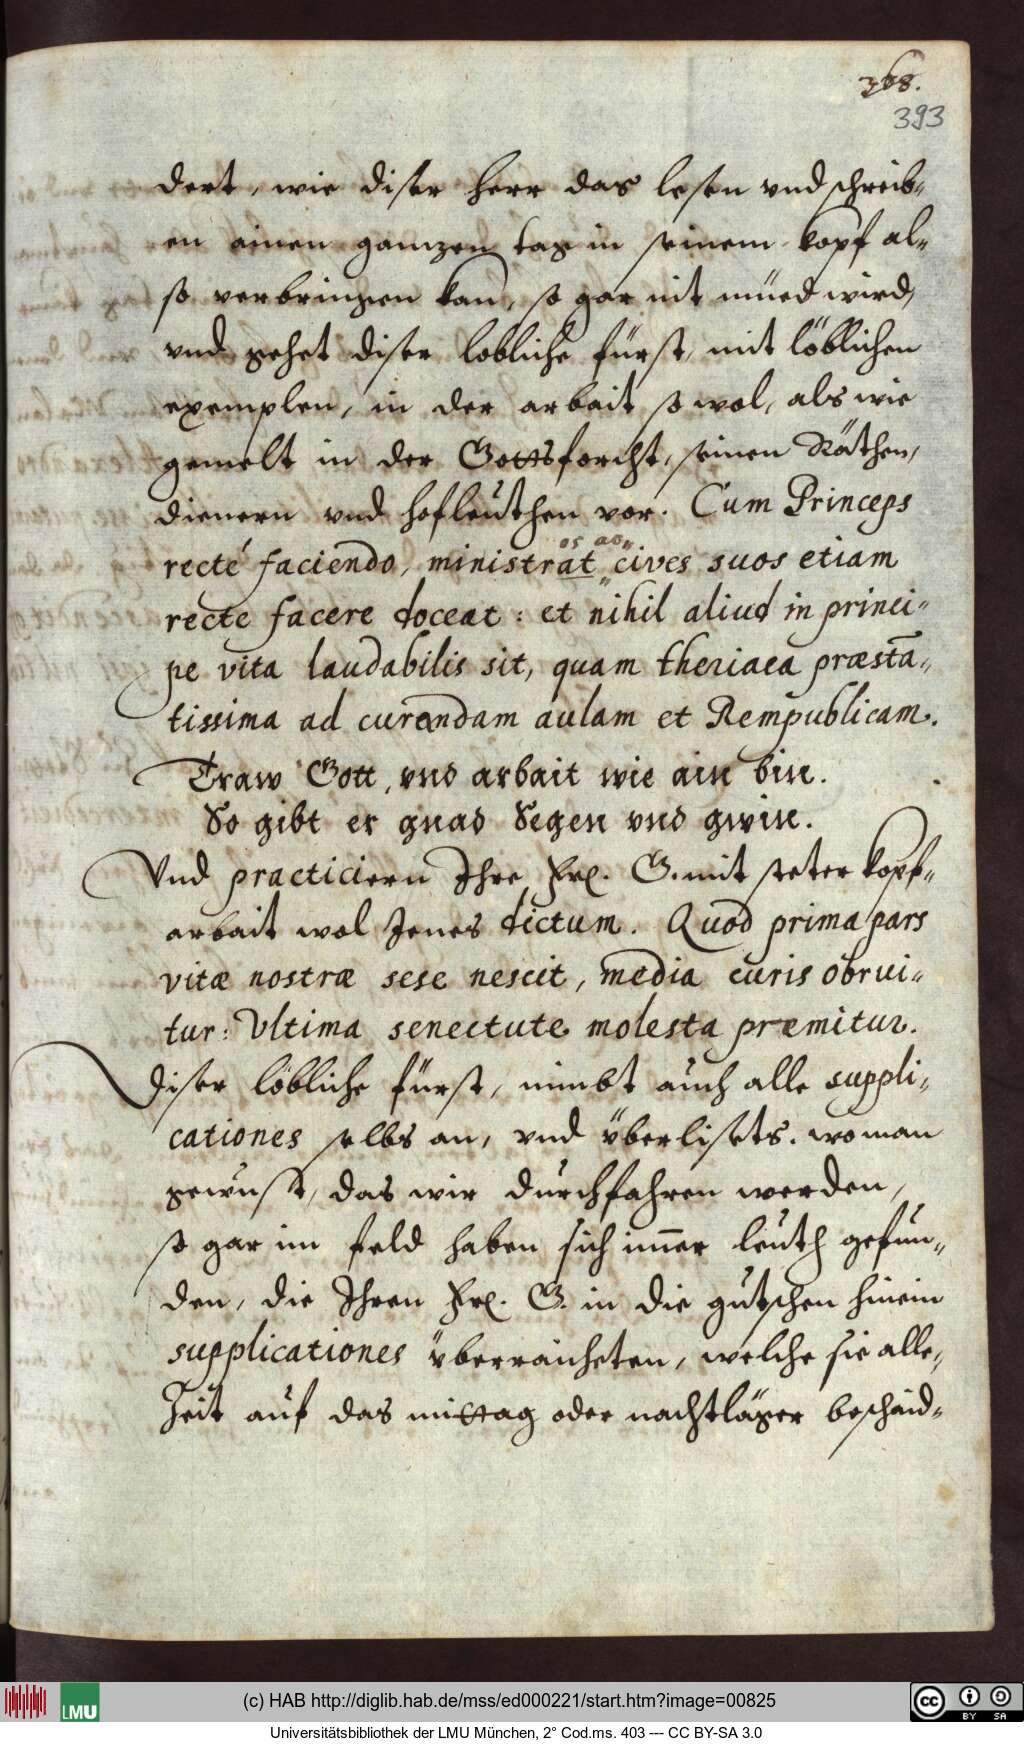 368.
393
dert, wie diser herr das lesen vnd schreib„
en ainen gantzen tag in seinem kopf al„
so verbringen kan, so gar nit müed wird,
vnd gehet diser lobliche fürst, mit löblichen
exemplen, in der arbait so wol, als wie
gemelt in der Gottsforcht, seinen Räthen,
dienern vnd hofleüthen vor. Cum Princeps
recté faciendo, ministrat cives suos etiam
os ac„
recte facere doceat: et nihil aliud in princi„
pe vita laudabilis sit, quam theriaca præsta„
tissima ad curandam aulam et Rempublicam.
Traw Gott, vnd arbait wie ain bin.
So gibt er gnad Segen vnd gwin.
Vnd practiciern Ihre Frl. G. mit steter kopf„
arbait wol Jenes dictum. Quod prima pars
vitæ nostræ sese nescit, media curis obrui„
tur: Vltima senectute molesta præmitur.
Diser löbliche fürst, nimbt auch alle suppli„
cationes selbs an, vnd überlisets. wo man
gewüst, das wir durchfahren werden,
so gar im feld haben sich imer leüth gefun„
den, die Ihren Frl. G. in die gutschen hinein
supplicationes überraicheten, welche sie alle„
Zeit auf das mittag oder nachtläger beschaid„
(c) HAB http://diglib.hab.de/mss/ed000221/start.htm?image=00825
Universitätsbibliothek der LMU München, 2° Cod.ms. 403 --- CC BY-SA 3.0
LMU
cc BY SA